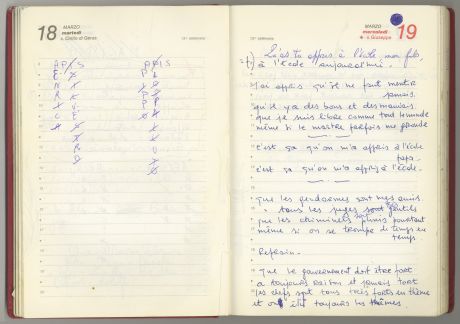 18
MARZO
martedì
s. Cirillo di Gerus.
12ª settimana
MARZO
mercoledì
s. Giuseppe
19
12ª settimana
qu'as tu appris à l'école mon fils,
à l'école aujourd'hui.
J'ai appris qu'il ne faut mentir
jamais.
qu'il y a des bons et des mauvais.
que je suis libre comme tout le monde
même si le maître parfois me gronde
c'est ça qu'on m'a appris à l'école
papa.
c'est ça qu'on m'a appris à l'école.
que les gendarmes sont mes amis.
tous les juges sont gentils
que les criminels sont punis pourtant
même si on se trompe de temps en
temps.
Refrain.
que le gouvernement doit être fort
a toujours raison et jamais tort
les chefs sont tous très forts en thème
et on élit toujours les mêmes.